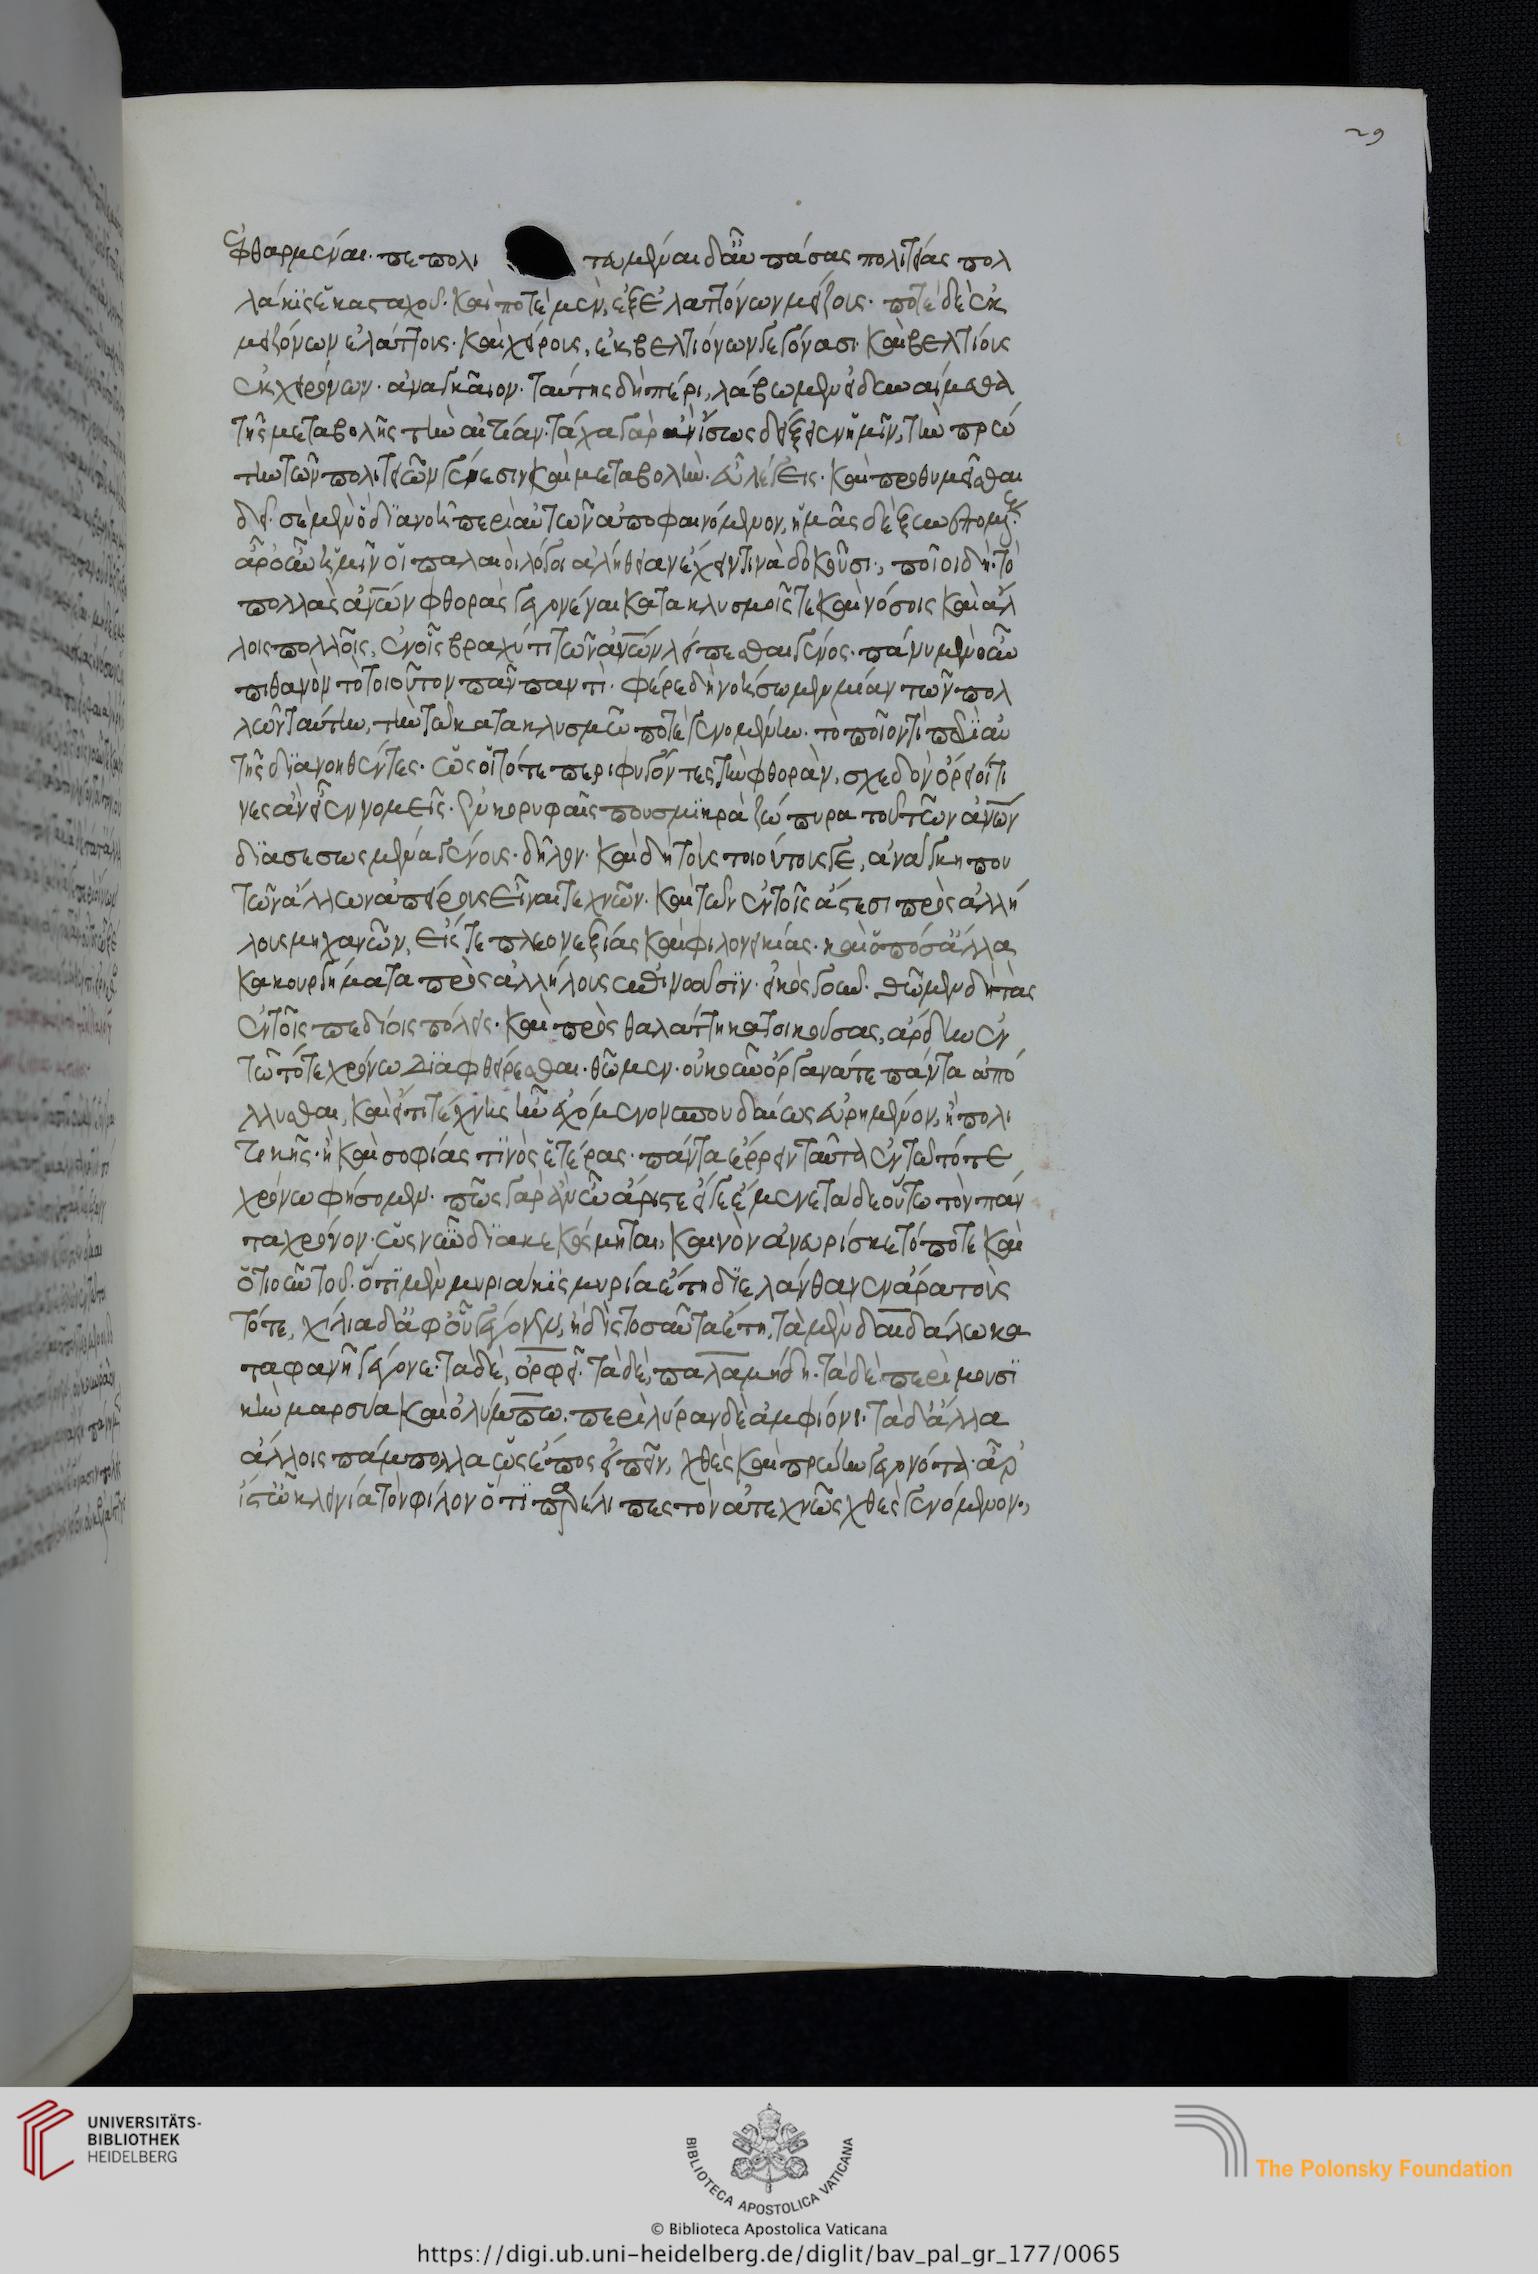 ἐφθαρμέναι. πεπολι τευμέναι δ' αὖ πάσας πολιτείας πολ
λάκις ἑκασταχοῦ. καὶ ποτὲ μὲν, ἐξ ἐλαττόνων μείζους. ποτὲ δὲ ἐκ
μειζόνων ἐλάττους. καὶ χείρους, ἐκ βελτιόνων γεγόνασι. καὶ βελτίους
ἐκ χειρόνων. ἀναγκαῖον. ταύτης δὴ πέρι, λάβωμεν εἰ δυναίμεθα
τῆς μεταβολῆς τὴν αἰτίαν. τάχα γὰρ ἂν ἴσως δείξειεν ἡμῖν, τὴν πρώ
την τῶν πολιτειῶν γένεσιν καὶ μεταβολήν. εὖ λέγεις. καὶ προθυμεῖσθαι
δεῖ. σὲ μὲν ὃ διανοῇ περὶ αὐτῶν ἀποφαινόμενον, ἡμᾶς δὲ
ἆρ' οὖν ὑμῖν οἱ παλαιοὶ λόγοι ἀλήθειαν ἔχειν τινὰ δοκοῦσι., ποῖοι δή. τὸ
πολλὰς ἀν̅ων φθορὰς γεγονέναι κατακλυσμοῖς τε καὶ νόσοις καὶ ἄλ
λοις πολλοῖς, ἐν οἷς βραχύ τι τῶν ἀν̅ων λείπεσθαι γένος. πάνυ μὲν οὖν
πιθανὸν τὸ τοιοῦτον πᾶν παντί. φέρε δὴ νοήσωμεν μίαν τῶν πολ
λῶν ταύτην, τὴν τῷ κατακλυσμῷ ποτὲ γενομένην. τὸ ποῖόν τι περὶ αὐ
τῆς διανοηθέντες. ὡς οἱ τότε περιφυγόντες τὴν φθορὰν, σχεδὸν ὄρειοί τι
νες ἂν εἶεν νομεῖς. ἐν κορυφαῖς που σμικρὰ ζώπυρα τοῦ τῶν ἀν̅ων
διασεσωσμένα γένους. δῆλον. καὶ δὴ τοὺς τοιούτους γε, ἀνάγκη που
τῶν ἄλλων ἀπείρους εἶναι τεχνῶν. καὶ τῶν ἐν τοῖς ἄστεσι πρὸς ἀλλή
λους μηχανῶν, εἴς τε πλεονεξίας καὶ φιλονεικίας. καὶ ὁπόσ' ἄλλα
κακουργήματα πρὸς ἀλλήλους ἐπινοοῦσιν. εἰκὸς γοῦν. θῶμεν δὴ τὰς
ἐν τοῖς πεδίοις πόλεις. καὶ πρὸς θαλάττῃ κατοικούσας, ἄρδην ἐν
τῷ τότε χρόνῳ διαφθείρεσθαι. θῶμεν. οὐκοῦν ὄργανά τε πάντα ἀπό
λλυσθαι, καὶ εἴ τι τέχνης ἦν ἐχόμενον σπουδαίως εὑρημένον, ἢ πολι
τικῆς. ἢ καὶ σοφίας τινὸς ἑτέρας. πάντα ἔρρειν ταῦτα ἐν τῷ τότε
χρόνῳ φήσομεν. πῶς γὰρ ἂν ὦ ἄριστε εἴ γε ἔμενε τάδε οὕτω τὸν πάν
τα χρόνον. ὡς νῦν διακεκόσμηται, καινὸν ἀνευρίσκετό ποτε καὶ
ὁτιοῦν τοῦ. ὅτι μὲν μυριάκις μυρία ἔτη διελάνθανεν ἄρα τοὺς
τότε, χίλια δ' ἀφ' οὗ γέγονεν, ἢ δὶς τοσαῦτα ἔτη, τὰ μὲν δαιδάλῳ κα
ταφανῆ γέγονε. τὰ δὲ, ὀρφεῖ. τὰ δὲ, παλαμήδῃ. τὰ δὲ περὶ μουσι
κὴν μαρσύᾳ καὶ ὀλύμπῳ. περὶ λύραν δὲ ἀμφίονι. τὰ δ' ἄλλα
ἄλλοις πάμπολλα ὡς ἔπος εἰπεῖν, χθὲς καὶ πρώην γεγονότα. ἆρ'
ἴστ' ὦ κλεινία τὸν φίλον ὅτι παρέλιπες τὸν ἀτεχνῶς χθὲς γενόμενον.,
29
UNIVERSITÄTS-
BIBLIOTHEK
HEIDELBERG
BIBLIOTECA APOSTOLICA VATICANA
The Polonsky Foundation
© Biblioteca Apostolica Vaticana
https://digi.ub.uni-heidelberg.de/diglit/bav_pal_gr_177/0065